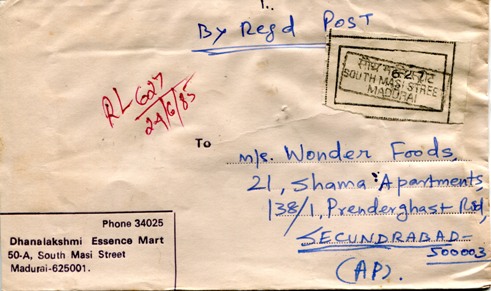 By Regd Post
6-27
SOUTH MASI STREE
MADURAI
RL 627
24/6/85
To
M/s. Wonder Foods,
21, Shama Apartments,
138/1, Prenderghast Rd,
SECUNDRABAD-
500003
(AP).
Phone 34025
Dhanalakshmi Essence Mart
50-A, South Masi Street
Madurai-625001.